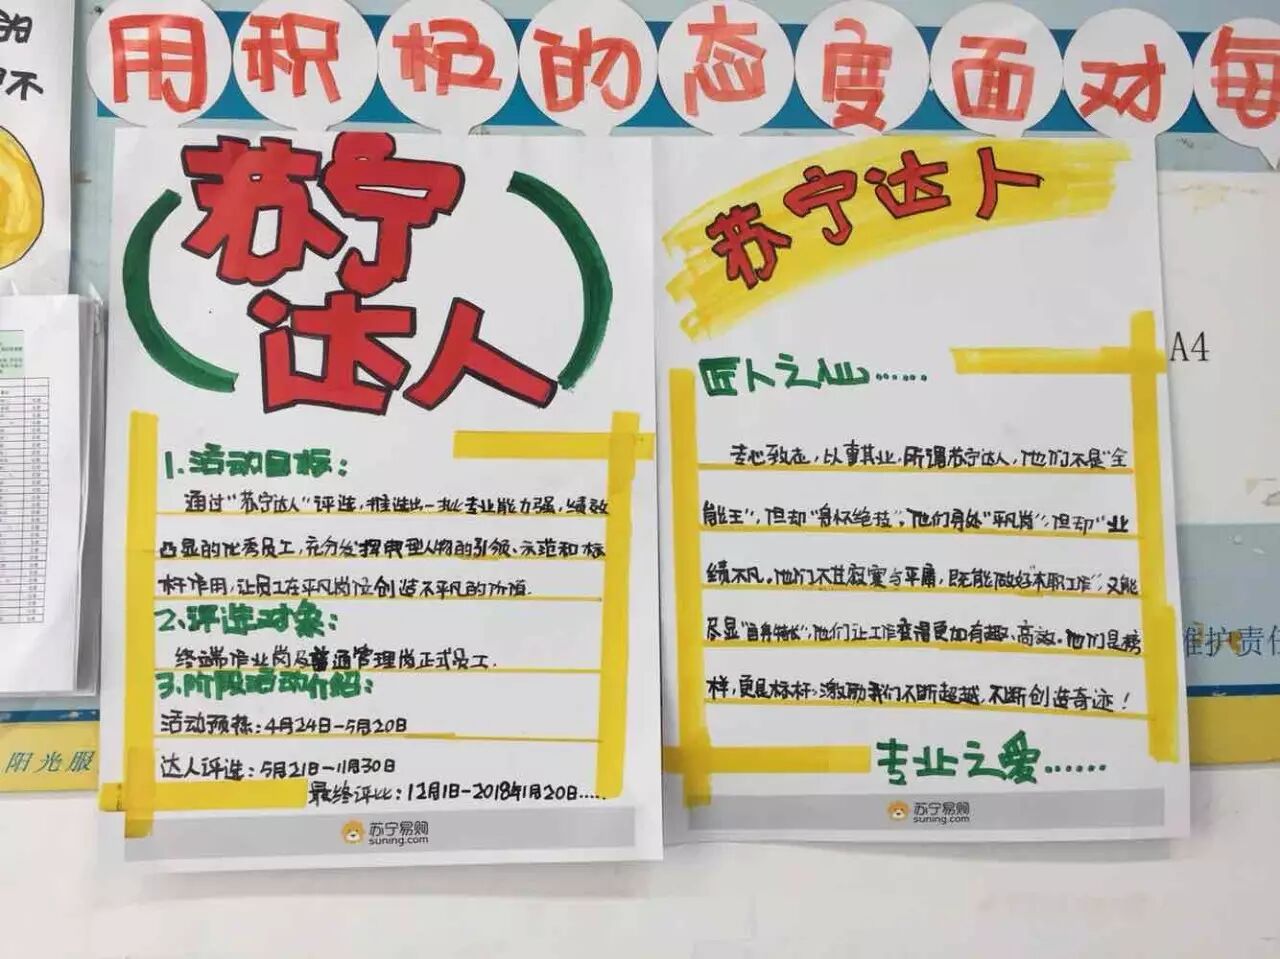 的
不
用积极的态度面对每
苏宁
达人
1.活动目标:
通过"苏宁达人"评选,推选出一批专业能力强,绩效
凸显的优秀员工,充分发挥典型人物的引领、示范和标
杆作用,让员工在平凡岗位创造不平凡的价值.
2.评选对象:
终端作业岗及普通管理岗正式员工.
3.阶段活动介绍:
活动预热:4月24日-5月20日
达人评选:5月21日-11月30日
最终评比:12月1日-2018年1月20日.....
苏宁易购
suning.com
苏宁达人
匠人之心......
专心致志,以事其业,所谓苏宁达人,他们不是"全
能王",但却"身怀绝技",他们身处"平凡岗",但却"业
绩不凡。他们不甘寂寞与平庸,既能做好"本职工作",又能
尽显"自身特长",他们让工作变得更加有趣、高效。他们是榜
样,更是标杆,激励我们不断超越,不断创造奇迹!
专业之爱......
苏宁易购
suning.com
A4
维护责任
阳光服